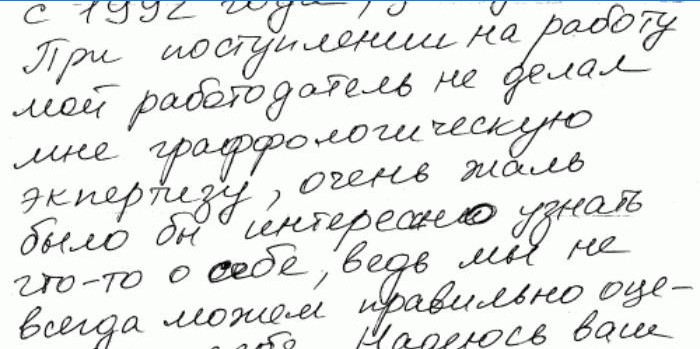 с 1992 года,
При поступлении на работу
мой работодатель не делал
мне граффологическую
экпертизу, очень жаль
было бы интересно узнать
что-то о себе, ведь мы не
всегда можем правильно оце-
Надеюсь ваш